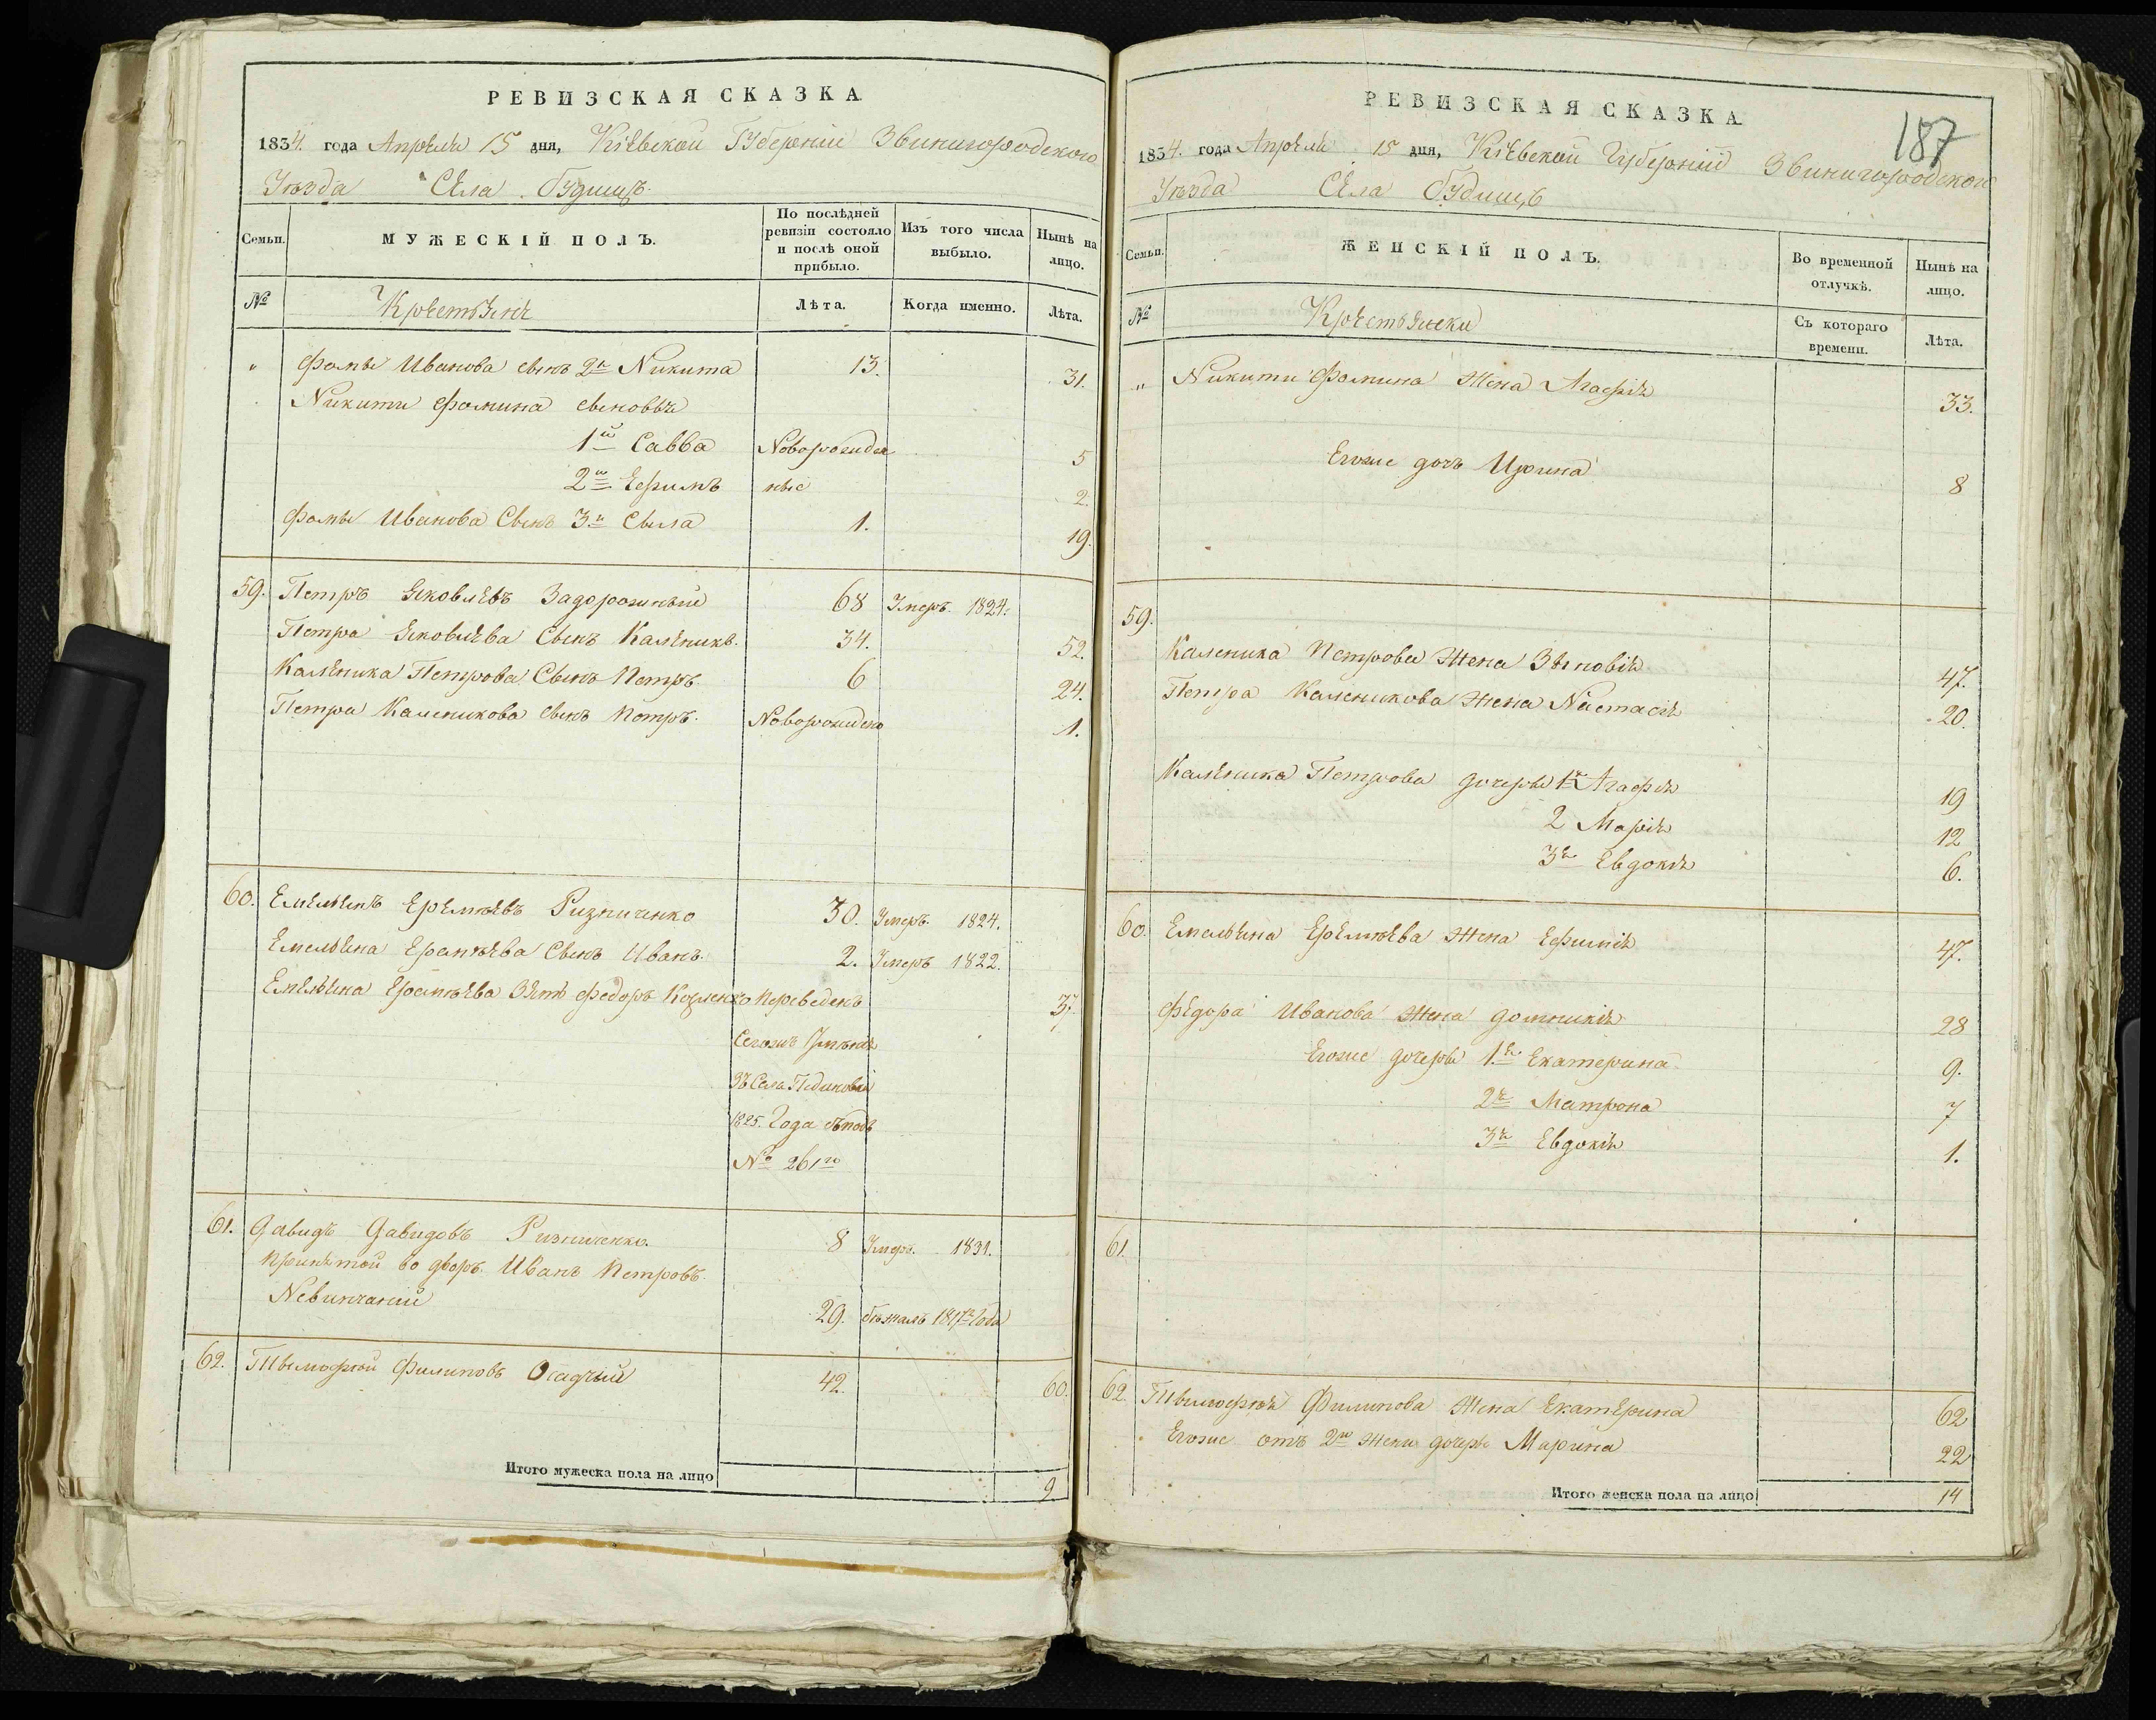 РЕВИЗСКАЯ СКАЗКА
1834. года Апреля 15 дня, Кіевской Губерніи Звинигородского
Уезда Села Будищъ.
Семьи.
МУЖЕСКІЙ ПОЛЪ.
По послѣдней ревизіи состояло и послѣ оной прибыло.
Изъ того числа выбыло.
Нынѣ на лицо.
№
Крестьяне
Лѣта.
Когда именно.
Лѣта.
" Фомы Иванова сынъ 2й Никита 13. 31.
Никити Фомина сыновья
1й Савва Новорожден 5
2й Ефимъ ные 2.
Фомы Иванова Сынъ 3й Сыла 1. 19.
59. Петръ Яковлевъ Задорожный 68 Умеръ. 1824.
Петра Яковлева Сынъ Каленикъ. 34. 52.
Каленика Петрова Сынъ Петръ 6 24.
Петра Каленикова сынъ Петръ. Новорождено 1.
60. Емельянъ Еремѣевъ Ризниченко 30. Умеръ. 1824.
Емельяна Еремѣева Сынъ Иванъ. 2. Умеръ 1822.
Емельяна Еремѣева Зять Федоръ Козленко Переведенъ 37.
Сегожъ Имѣнія
Зъ Села
1825. Года
№ 261го
61. Давидъ Давидовъ Ризниченко. 8 Умеръ. 1831.
Принятой во дворъ. Иванъ Петровъ.
29. бѣжалъ 1817го Года
62. Тимофей Филиповъ Осадчый 42. 60.
Итого мужеска пола на лицо 9
187
РЕВИЗСКАЯ СКАЗКА
1834. года Апреля 15 дня, Кіевской Губерній Звинигородского
Уезда Села Будищъ
Семьи.
ЖЕНСКІЙ ПОЛЪ.
Во временной отлучкѣ.
Нынѣ на лицо.
№
Крестьянки
Съ котораго времени.
Лѣта.
" Никити Фомина Жена Агафія 33.
Егоже дочь Ирина 8
59.
Каленика Петрова Жена Зѣновія 47.
Петра Каленикова Жена Настасія 20.
Каленика Петрова дочеры 1я Агафія 19
2 Марія 12
3я Евдокія 6.
60. Емельяна Еремѣева Жена Ефимія 47.
Фѣдора Иванова Жена домникія 28
Егоже дочеры 1я Екатерина 9.
2я Матрона 7
3я Евдокія 1.
61.
62. Тимофея Филипова Жена Екатерина 62
Егоже отъ 2й Жени дочерь Марина 22
Итого женска пола на лицо 14